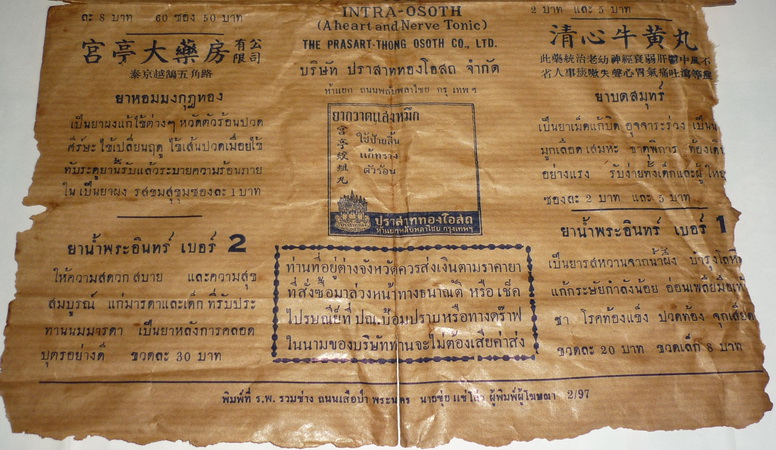 ละ 8 บาท 60 ซอง 50 บาท
宮亭大藥房有限公司
泰京越鴿五角路
ยาหอมมงกุฎทอง
เป็นยาผงแก้ไข้ต่างๆ หวัดตัวร้อนปวด
ศีร์ษะ ไข้เปลี่ยนฤดู ไข้เส้นปวดเมื่อยไข้
ทับระดูยานี้รับแล้วระบายความร้อนภาย
ใน เป็นยาผง รสขมสุขุมซองละ 1 บาท
ยาน้ำพระอินทร์ เบอร์ 2
ให้ความสดวกสบาย และความสุข
สมบูรณ์ แก่มารดาและเด็ก ที่รับประ
ทานนมมารดา เป็นยาหลังการคลอด
บุตรอย่างดี ขวดละ 30 บาท
INTRA-OSOTH
(A heart and Nerve Tonic)
THE PRASART-THONG OSOTH CO., LTD.
บริษัท ปราสาททองโอสถ จำกัด
ห้าแยก ถนนพลับพลาไชย กรุงเทพฯ
ยากวาดแสงหมึก
宮亭
丸
ใช้ป้ายลิ้น
แก้ทราง
ตัวร้อน
ปราสาททองโอสถ
ห้าแยกพลับพลาไชย กรุงเทพฯ
ท่านที่อยู่ต่างจังหวัดควรส่งเงินตามราคายา
ที่สั่งซื้อมาล่วงหน้าทางธนาณัติ หรือเช็ค
ไปรษณีย์ที่ ปณ. ป้อมปราบ หรือทางดร๊าฟ
ในนามของบริษัทท่านจะไม่ต้องเสียค่าส่ง
2 บาท และ 5 บาท
清心牛黄丸
此藥統治老幼神經衰弱肝鬱中風不
省人事痰嗽失聲心胃氣痛吐瀉等
ยาบดสมุทร์
เป็นยาเม็ดแก้บิด อุจจาระร่วง เป็น
มูกเลือด เสมหะ ธาตุพิการ ท้อง
อย่างแรง รับง่ายทั้งเด็กและผู้ใหญ่
ซองละ 2 บาท และ 5 บาท
ยาน้ำพระอินทร์ เบอร์ 1
เป็นยารสหวานจากน้ำผึ้ง บำรุงโลหิต
แก้กระษัยกำลังน้อย อ่อนเพลียมือเท้า
ชา โรคท้องแข็ง ปวดท้อง จุกเสียด
ขวดละ 20 บาท ขวดเล็ก 8 บาท
พิมพ์ที่ ร.พ. รวมช่าง ถนนเสือป่า พระนคร นายชุ่ย แซ่โล้ว ผู้พิมพ์ผู้โฆษณา 2/97